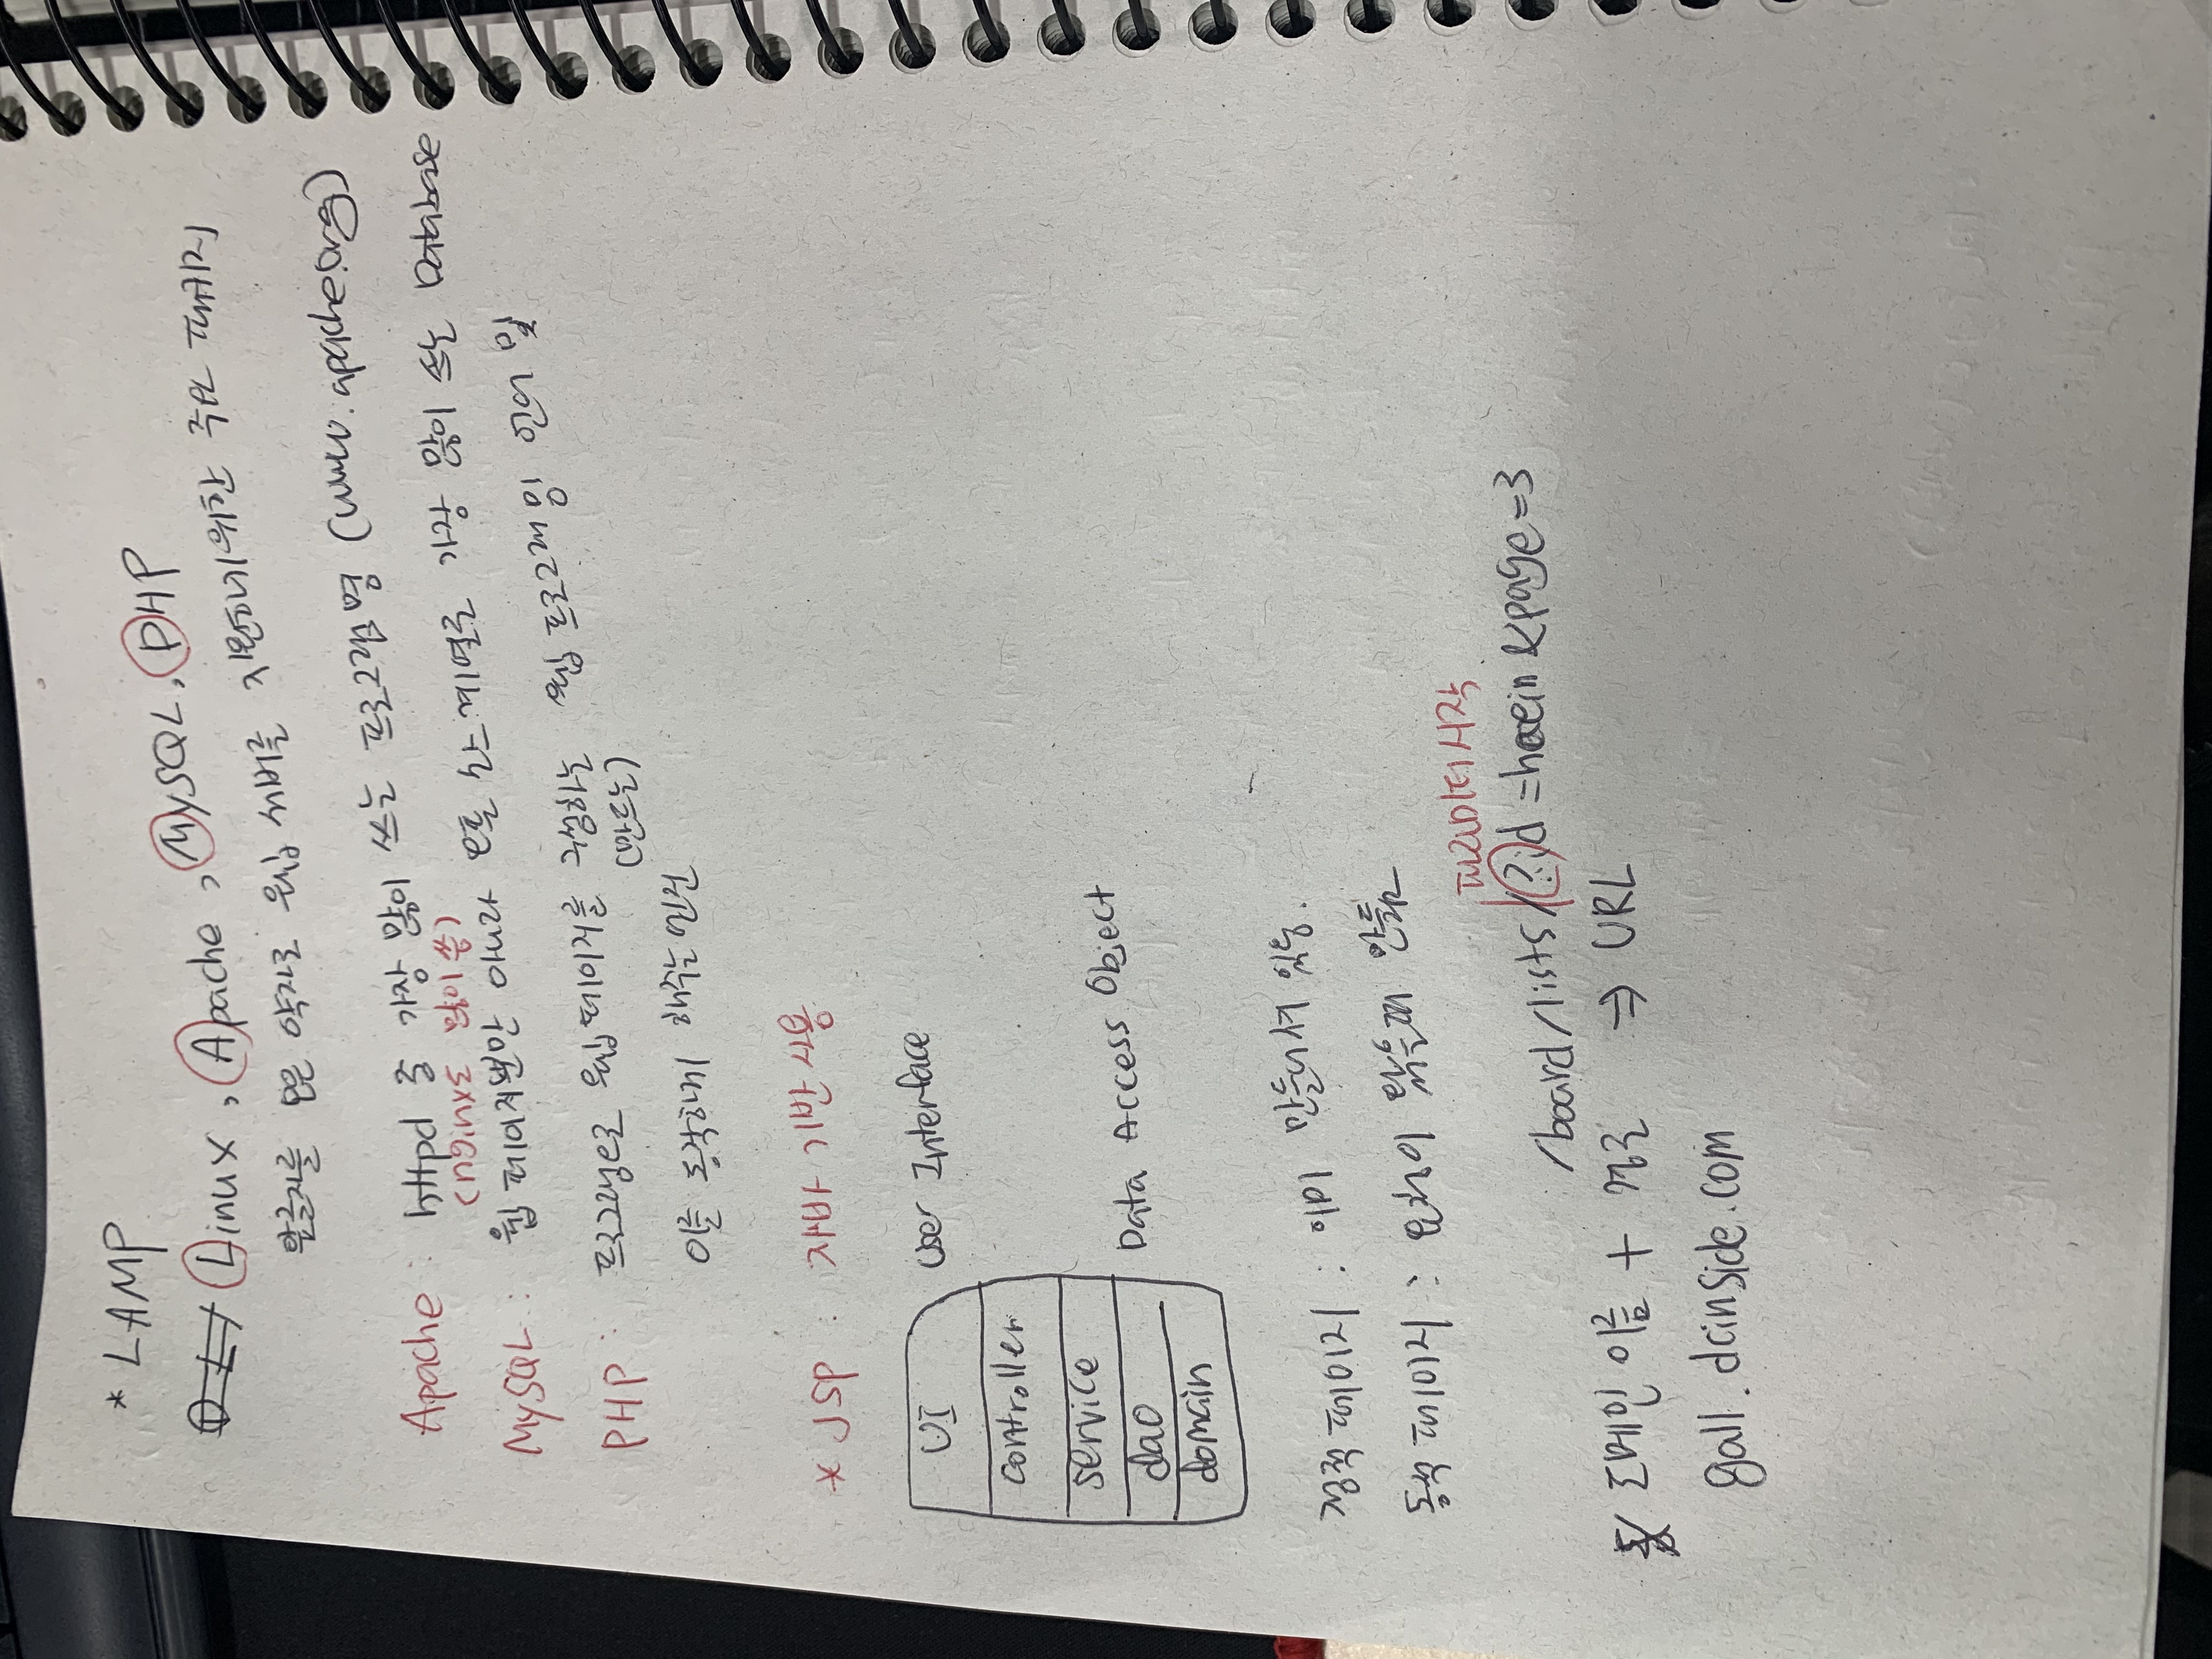 * LAMP
Linux, Apache, MySQL, PHP
앞글자를 땀은 약자로 웹 서버를 지원하기위한 주요 패키지
Apache : httpd 중 가장 많이 쓰는 프로그램 명 (www.apache.org)
(nginx도 많이 씀)
MySQL : 웹 페이지뿐만 아니라 모듈 산드레열로 가장 많이 쓰는 Database
PHP : 프로그램으로 웹페이지를 구성하는 웹 프로그래밍 언어 및
(만드는)
이를 동작하게 해주는 엔진
* JSP : 자바 기반 사용
UI
User Interface
controller
service
dao
Data Access Object
domain
정적 페이지 : 이미 만들어서 있음.
동적 페이지 : 요청이 있을때 만듦
파라미터 시작
/board/lists/?id=hoein&page=3
* 도메인 이름 + 경로 ⇒ URL
gall.dcinside.com